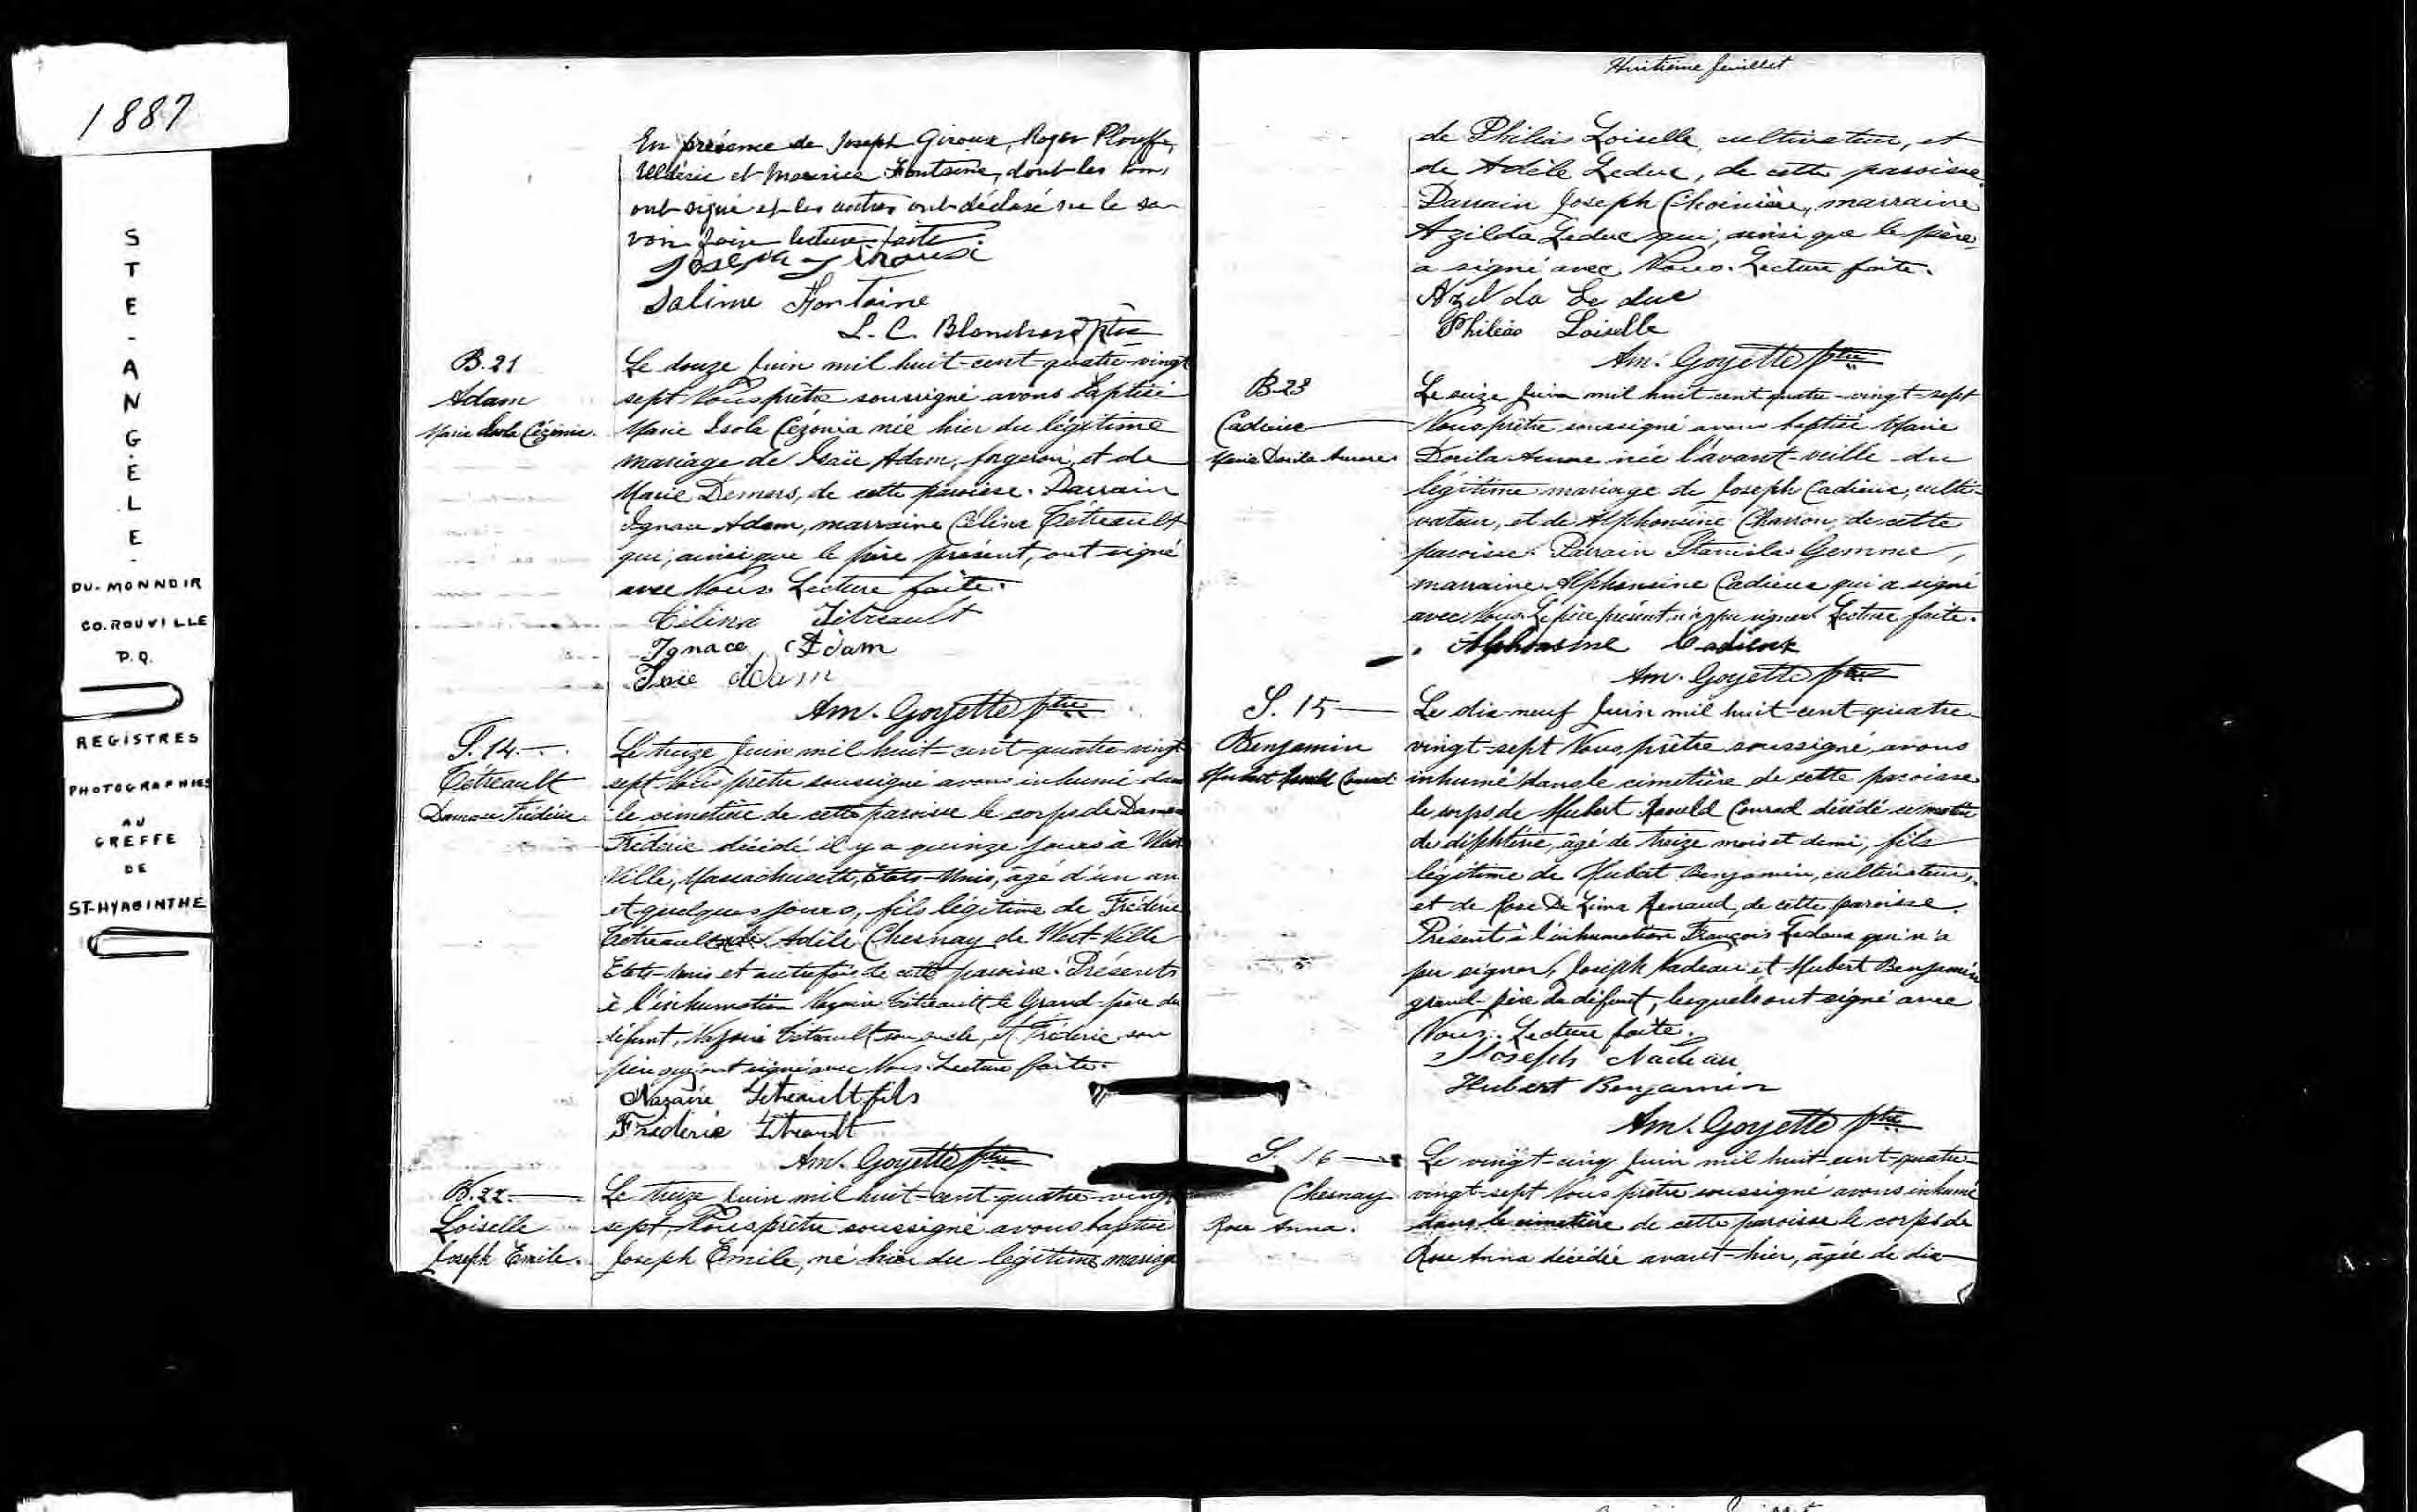 1887
STE-ANGÈLE-
DU-MONNOIR
CO. ROUVILLE
P.Q.
REGISTRES
PHOTOGRAPHIES
AU
GREFFE
DE
ST-HYACINTHE
En présence de Joseph Giroux, Roger Plouffe,
et Fontaine, dont les
ont signé et les autres ont déclaré ne le sa-
voir faire lecture faite.
Joseph
Salime Fontaine
L. C. Blanchard ptre
B. 21
Adam
Marie Isola Cézonia.
Le douze Juin mil huit-cent-quatre-vingt
sept Nous prêtre soussigné avons baptisé
Marie Isola Cézonia née hier du légitime
mariage de Isaïe Adam, forgeron, et de
Marie Demers, de cette paroisse. Parrain
Ignace Adam, marraine Célina Tétreault
qui, ainsi que le père présent, ont signé
avec Nous. Lecture faite.
Célina Tétreault
Ignace Adam
Adam
Am. Goyette ptre
S. 14.
Tétreault
Frédéric.
Le treize Juin mil huit-cent-quatre-vingt
sept Nous prêtre soussigné avons inhumé dans
le cimetière de cette paroisse le corps de
Frédéric décédé il y a quinze jours à West
Ville, Massachusetts, États-Unis, âgé d'un an
et quelques jours, fils légitime de Frédéric
Tétreault et de Adèle Chesnay de West-Ville
Etats-Unis et autrefois de cette paroisse. Présents
à l'inhumation Nazaire Tétreault le Grand-père du
défunt, Nazaire Tétreault son oncle, et Frédéric son
père qui ont signé avec Nous. Lecture faite.
Nazaire Tétreault fils
Frédéric Tétreault
Am. Goyette ptre
B. 22.
Loiselle
Joseph Emile.
Le treize Juin mil huit-cent-quatre-vingt
sept, Nous prêtre soussigné avons baptisé
Joseph Emile, né hier du légitime mariage
Huitième feuillet
de Philéas Loiselle, cultivateur, et
de Adèle Leduc, de cette paroisse.
Parrain Joseph Choinière, marraine
Azilda Leduc qui, ainsi que le père,
a signé avec Nous. Lecture faite.
Azilda Le duc
Philéas Loiselle
Am. Goyette ptre
B. 23
Cadieux
Marie Dorila Aurore
Le seize Juin mil huit cent quatre-vingt-sept
Nous prêtre soussigné avons baptisé Marie
Dorila Aurore née l'avant-veille du
légitime mariage de Joseph Cadieux, culti-
vateur, et de Alphonsine Charron, de cette
paroisse. Parrain Stanislas Gemme,
marraine Alphonsine Cadieux qui a signé
avec Nous. Le père présent n'a pu signer. Lecture faite.
Alphonsine Cadieux
Am. Goyette ptre
S. 15
Benjamin
Hubert Conrad
Le dix-neuf Juin mil huit-cent-quatre-
vingt-sept Nous prêtre soussigné, avons
inhumé dans le cimetière de cette paroisse
le corps de Hubert Conrad décédé ce matin
de diphtérie, âgé de treize mois et demi, fils
légitime de Hubert Benjamin, cultivateur,
et de Rose De Lima Renaud, de cette paroisse.
Présent à l'inhumation François qui n'a
pu signer, Joseph Nadeau et Hubert Benjamin
grand-père du défunt, lesquels ont signé avec
Nous. Lecture faite.
Joseph Nadeau
Hubert Benjamin
Am. Goyette ptre
S. 16
Chesnay
Rose Anna.
Le vingt-cinq Juin mil huit-cent-quatre-
vingt-sept Nous prêtre soussigné avons inhumé
dans le cimetière de cette paroisse le corps de
Rose Anna décédée avant-hier, âgée de dix-